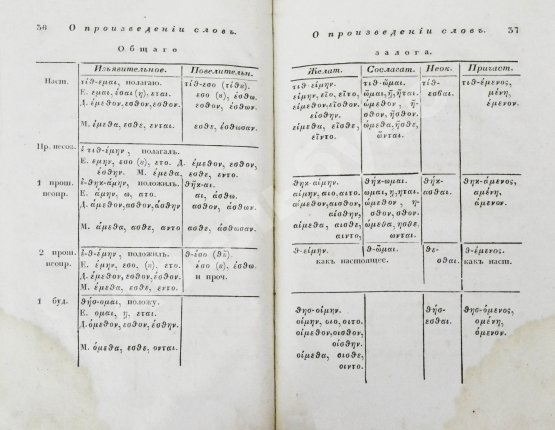 36 О произведеніи словъ.
Общаго
Изъявительное. Повелительн.
Наст. τίθ-εμαι, полагаю. τίθ-εσο (τίθȣ).
Е. εμαι, εσαι (ῃ), εται. Е. εσο (ȣ), έσθω.
Д. έμεθον, εσθον, εσθον. εσθον, έσθων.
М. έμεθα, εσθε, ενται. εσθε, έσθωσαν.
Пр. несов. ἐτιθ-έμην, полагалъ.
Е. έμην, εσο (ȣ), ετο. Д. έμεθον, εσθον,
έσθην. М. έμεθα, εσθε, εντο.
1 прош. ἐ-θηκ-άμην, положилъ. θῆκ-αι.
неопр. Е. άμην, ω, ατο. αι, άσθω.
Д. άμεθον, ασθον, άσθην ασθον, άσθων.
М. άμεθα, ασθε, αντο ασθε, άσθωσαν.
2 прош. ἐ-θ-έμην, положилъ. θ-έσο (θȣ͂).
неопр. Е. έμην, εσο (ȣ), ετο. έσο (ȣ), έσθω.
Д. έμεθον, εσθον, έσθην. и проч.
М. έμεθα, εσθε, εντο.
1 буд. θήσ-ομαι, положу.
Е. ομαι, ῃ, εται.
Д. όμεθον, εσθον, εσθον.
М. όμεθα, εσθε, ονται.
О произведеніи словъ. 37
залога.
Желат. Сослагат. Неок. Причаст.
τιθ-είμην. τιθ-ῶμαι. τίθ- τιθ-έμενος,
είμην, εῖο, εῖτο, ῶμαι, ῇ, ῆται. εσθαι. μένη,
είμεθον, εῖσθον, ώμεθον, ῆ- έμενον.
είσθην. σθον, ῆσθον.
είμεθα, εῖσθε, ώμεθα, ῆσθε,
εῖντο. ῶνται.
θηκ-αίμην. θήκ-ωμαι. θήκ- θηκ-άμενος,
αίμην, αιο, αιτο. ωμαι, ῃ, ηται. ασθαι. αμένη,
αίμεθον, αισθον, ώμεθον, η- άμενον.
αίσθην, σθον, ησθον.
αίμεθα, αισθε, ώμεθα, ησθε,
αιντο, ωνται.
θ-είμην. θ-ῶμαι. θέ- θ-έμενος.
какъ настоящее. σθαι. какъ наст.
θησ-οίμην. θήσ- θησ-όμενος,
οίμην, οιο, οιτο. εσθαι. ομένη,
οίμεθον, οισθον, όμενον.
οίσθην.
οίμεθα, οισθε,
οιντο.